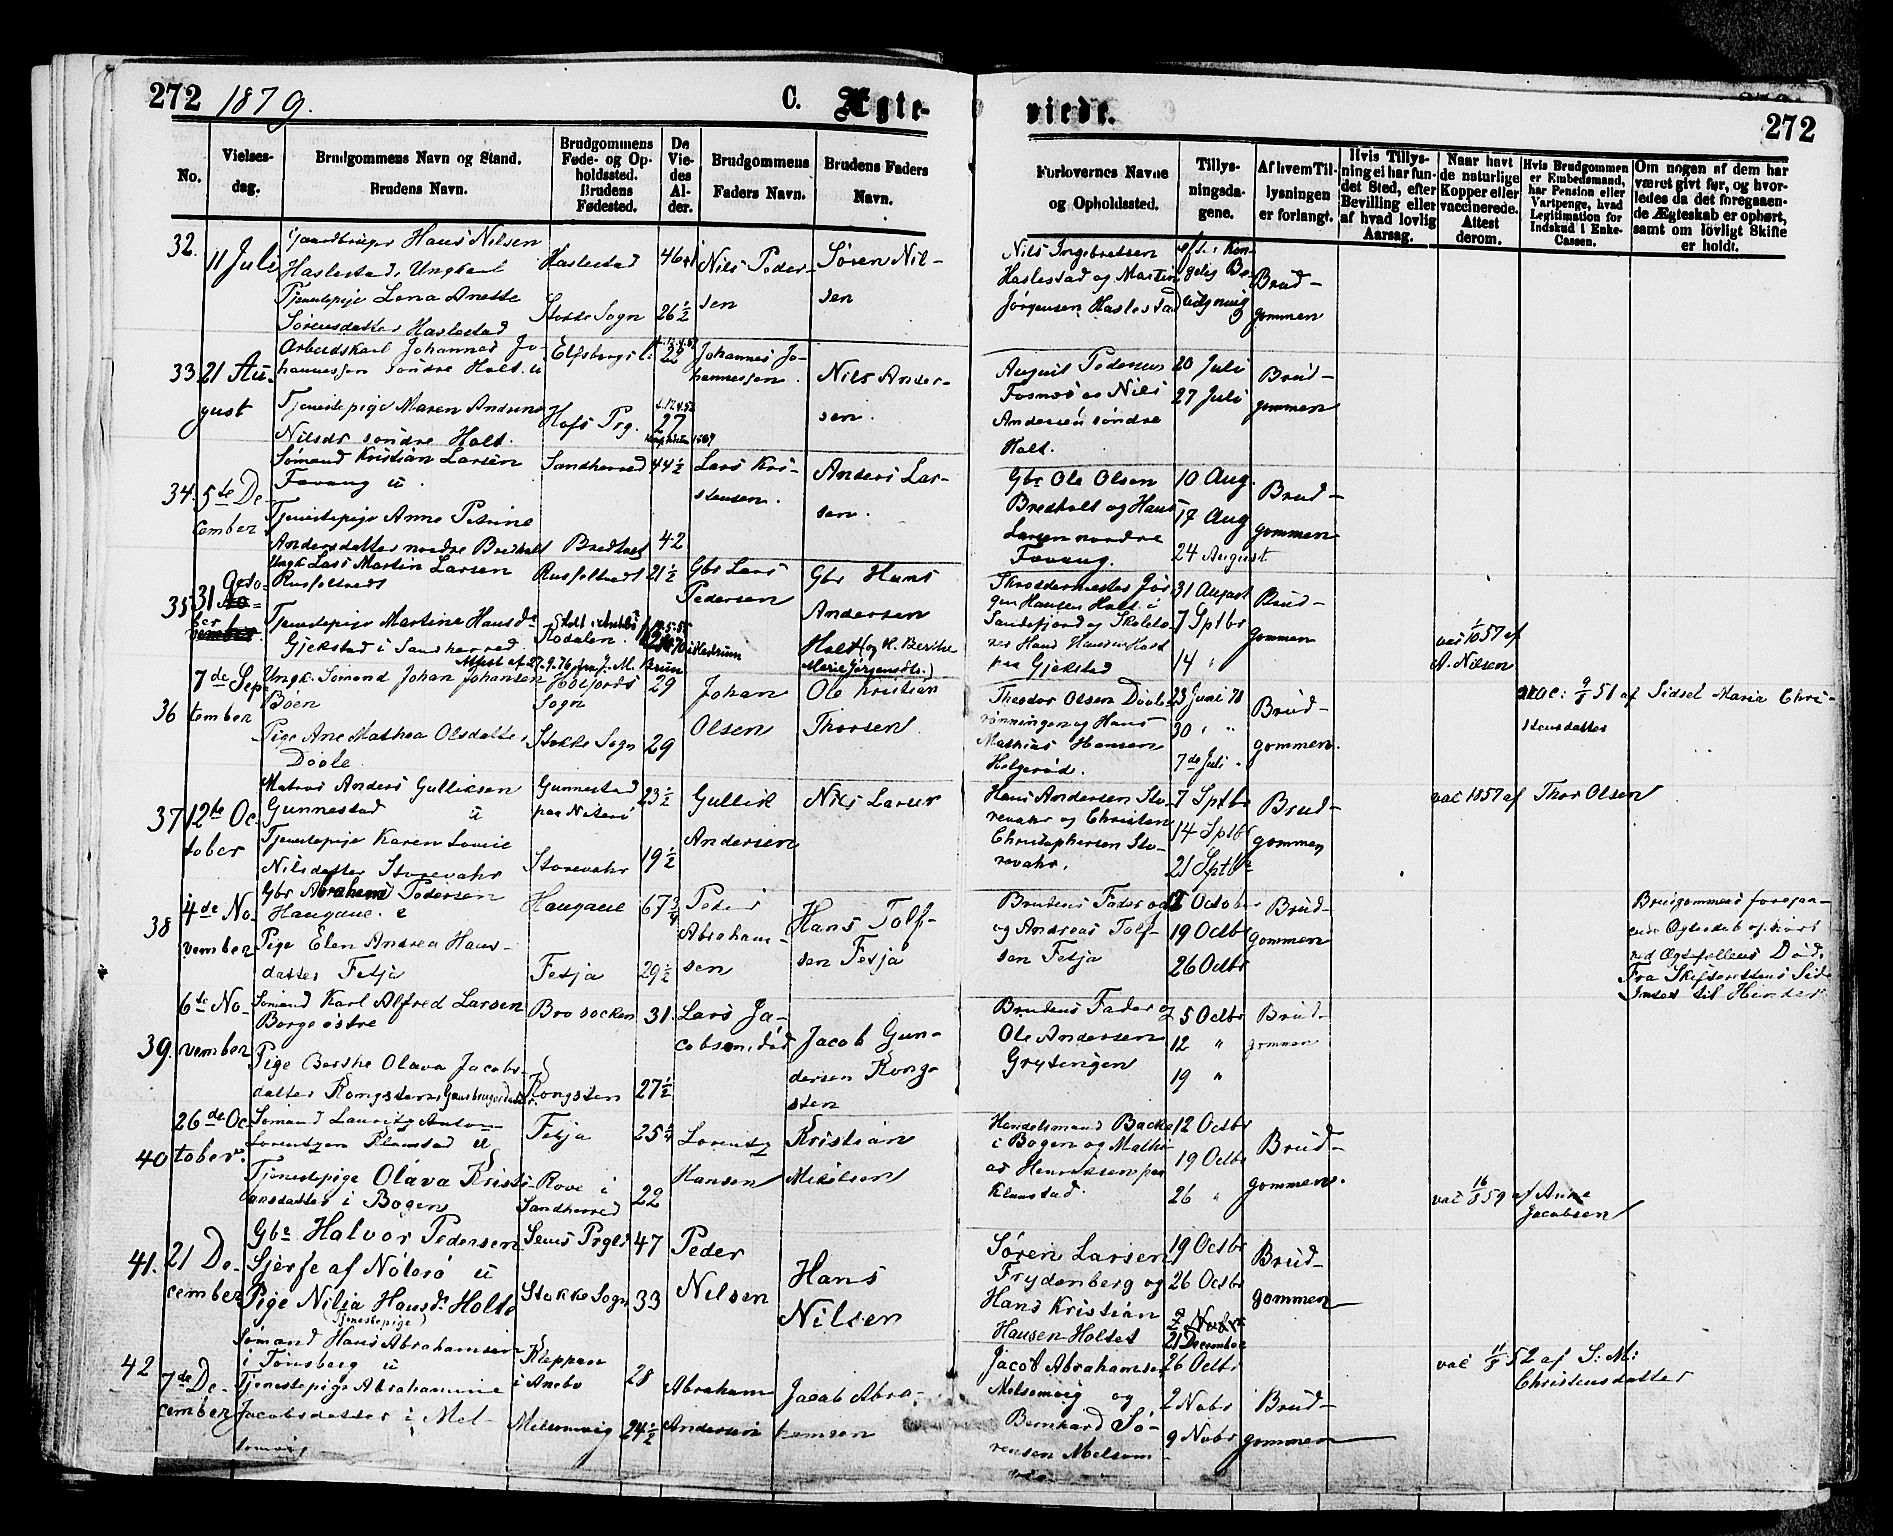 272 1879. C. Ægte-
viede. 272
No.
Vielses-
dag.
Brudgommens Navn og Stand.
Brudens Navn.
Brudgommens
Føde- og Op-
holdssted.
Brudens
Fødested.
De
Vie-
des
Al-
der.
Brudgommens
Faders Navn.
Brudens Faders
Navn.
Forlovernes Navne
og Opholdssted.
Tillys-
ningsda-
gene.
Af hvem Til-
lysningen
er forlangt.
Hvis Tillys-
ning ei har fun-
det Sted, efter
Bevilling eller
af hvad lovlig
Aarsag.
Naar havt
de naturlige
Kopper eller
vaccinerede.
Attest
derom.
Hvis Brudgommen
er Embedsmand,
har Pension eller
Vartpenge, hvad
Legitimation for
Indskud i Enke-
Cassen.
Om nogen af dem har
været givt før, og hvor-
ledes da det foregaaen-
de Ægteskab er ophørt,
samt om lovligt Skifte
er holdt.
32.
11 Juli
Gaardbruger Hans Nilsen
Haslestad, Ungkarl
Tjenestepige Lena Anette
Sørensdatter Haslestad
Haslestad
Stokke Sogn
26 1/2
Nils Peder-
sen
Søren Nil-
sen
Nils Ingebretsen
Haslestad og Martin
Jørgensen Haslestad
Brud-
gommen
33
21 Au-
gust
Arbeidskarl Johannes Jo-
hannessen søndre Holt. u
Tjenestepige Maren Andrine
Nilsdr søndre Holt.
Hofs Prg.
22
27
Johannes Jo-
hannessen.
Nils Ander-
sen.
August Pedersen
Fosnæs og Nils
Andersen søndre
Holt.
20 Juli
27 Juli
Brud-
gommen
34.
5te De-
cember
Sømand Kristian Larsen
Fevang u.
Tjenestepige Anne Petrine
Andersdatter nordre Bredholt
Sandherred
Bredholt
44 1/2
42
Lars Kri-
stensen.
Anders Lar-
sen.
Gbr Ole Olsen
Bredholt og Hans
Larsen nordre
Fevang.
10 Aug.
17 Aug
24 August
Brud-
gommen
35
31 Octo-
ber
Ungk Lars Martin Larsen
Rusfeltvedt
Tjenestepige Martine Hansdr
Gjekstad i Sandherred
Rusfeltvedt
21 1/2
Gbr Lars
Pedersen
Gbr Hans
Andersen
Holt (og H. Berthe
Marie Jørgensdtr.)
Skræddermester Jør-
gen Hansen Holt i
Sandefjord og Skolelæ-
rer Hans Hansen Holt
paa Gjekstad
31 August
7 Sptbr
14 "
Brud-
gommen
vac 1/10 57 af
A. Nilsen
36
7de Sep-
tember
Attest af 27.9.76 fra J. M. Bruun
Ungk. Sømand Johan Johansen
Bøen
Pige Ane Mathea Olsdatter
Døvle
Sogn
Stokke Sogn
29
29
Johan
Olsen
Ole Kristian
Thorsen
Theodor Olsen Døvle-
rønningen og Hans
Mathias Hansen
Helgerød.
23 Juni 78
30 " "
7de Juli "
Brud-
gommen.
vac: 9/8 51 af Sidsel Maria Chri-
stensdatter
37
12te Oc-
tober
Matros Anders Gulliksen
Gunnestad u
Tjenestepige Karen Lovise
Nilsdatter Storevahr
Gunnestad
paa Nøterø
Storevahr
23 1/2
19 1/2
Gullik
Andersen
Nils Larsen
Hans Andersen Sto-
revahr og Christen
Christophersen Sto-
revahr.
7 Sptbr
14 Sptbr
21 Sptbr
Brud-
gommen
vac 1857 af Thor Olsen
38
4de No-
vember
Gbr Abraham Pedersen
Haugane. e
Pige Elen Andrea Hans-
datter Fetja
Haugane
Fetja
67 3/4
29 1/2
Peder
Abraham-
sen
Hans Tolf-
sen Fetja
Brudens Fader og
og Andreas Tolf-
sen Fetja
19 Octbr
26 Octbr
Brud-
gommen
Brudgommens foregaa-
ende Ægteskab ophørt
ved Ægtefællens Død.
Fra Skifterettens Side
Intet til Hinder
39.
6te No-
vember
Sømand Karl Alfred Larsen
Borge østre
Pige Berthe Olava Jacobs-
datter Rongsten Gaardbrugerdatter
Bro socken
Rongsten
31.
27 1/2
Lars Ja-
cobsen, død
Jacob Gun-
dersen Rong-
sten
Brudens Fader og
Ole Andersen
Grytingen
5 Octbr
12 "
19 "
Brud-
gommen
40
26de Oc-
tober.
Sømand Lauritz Anton
Lorentzen Klavestad u
Tjenestepige Olava Kristi-
ansdatter i Bogen
Fetja
Rove i
Sandherred
25
22
Lorentz
Hansen
Kristian
Mikelsen
Handelsmand Backe
i Bogen og Mathi-
as Henriksen paa
Klavestad.
12 Octbr
19 Octbr
26 "
Brud-
gommen.
vac 16/8 59 af Anne
Jacobsen
41.
21 De-
cember
Gbr Halvor Pedersen
Sjerfe af Nøterø u
Pige Nilia Hansdr Holte
(Tjenestepige)
Sems Prgld
Stokke Sogn
47
33
Peder
Nilsen
Hans
Nilsen
Søren Larsen
Frydenberg og
Hans Kristian
Hansen Holtet
19 Octbr
26 Octbr
21 December
Brud-
gommen
42
7de De-
cember
Sømand Hans Abrahamsen
i Tønsberg u
Tjenestepige Abrahamine
Jacobsdatter i Mel-
somvig
Kleppan
i Anebo
Melsomvig
28
24 1/2
Abraham
Andersen
Jacob Abra-
hamsen
Jacob Abrahamsen
Melsomvig og
Bernhard Sø-
rensen Melsom-
26 Octbr
2 Novbr
9 Novbr
Brud-
gommen
vac 11/8 52 af S: M:
Christensdatter